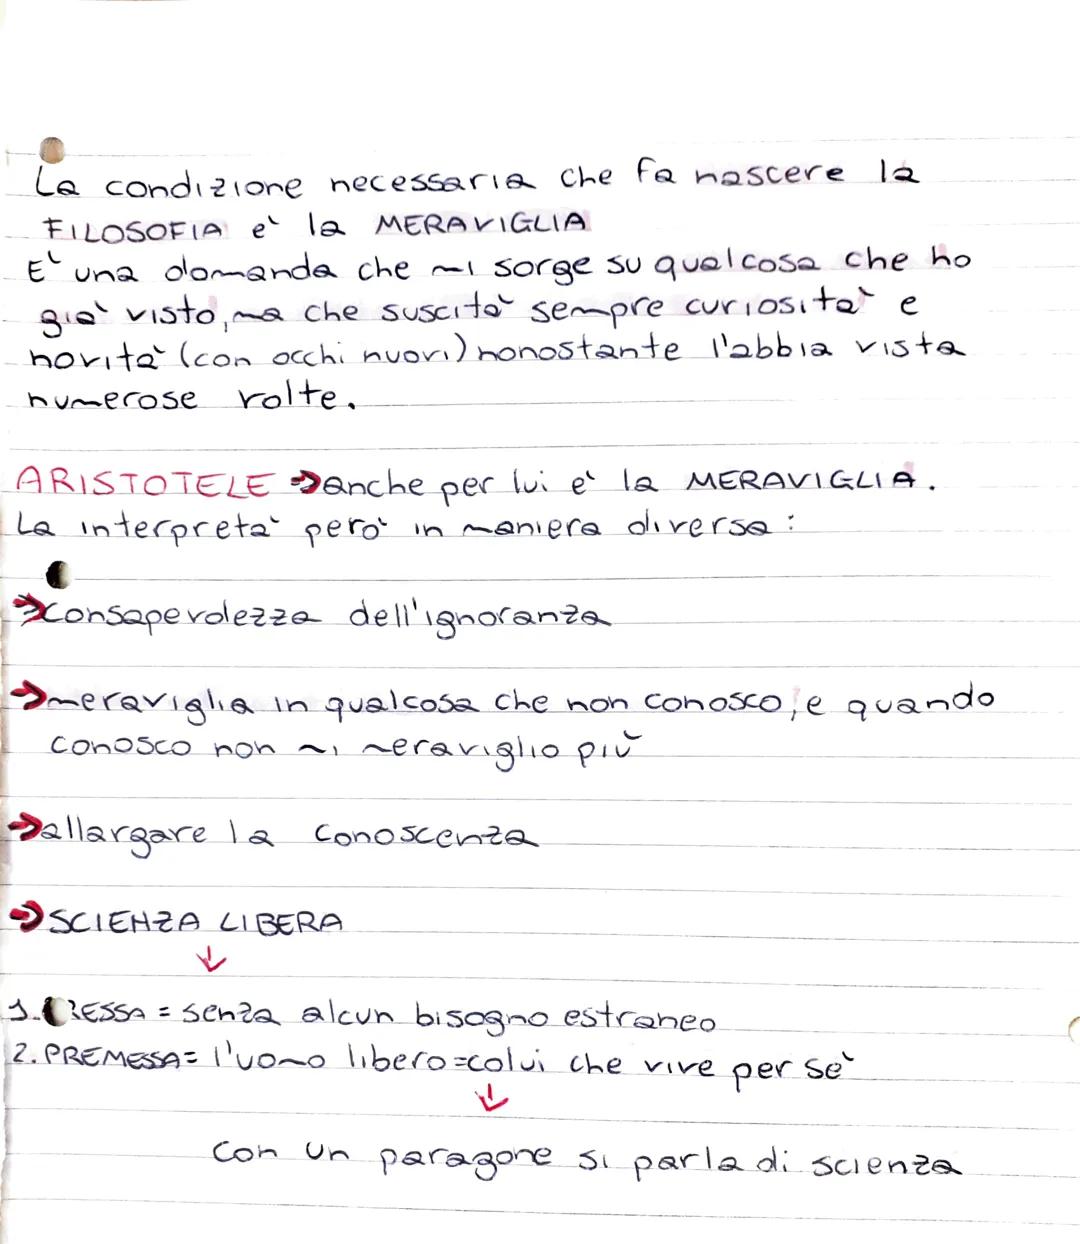 La condizione necessaria che fa nascere la
FILOSOFIA e` la MERAVIGLIA
E` una domanda che mi sorge su qualcosa che ho
già visto, ma che suscità sempre curiosità e
novità (con occhi nuovi) nonostante l'abbia vista
numerose volte.
ARISTOTELE → anche per lui è la MERAVIGLIA.
La interpretà però in maniera diversa:
→ consapevolezza dell'ignoranza
→ meraviglia in qualcosa che non conosco, e quando
conosco non mi meraviglio più
→ allargare la conoscenza
→ SCIENZA LIBERA
↓
1. RESSA = senza alcun bisogno estraneo
2. PREMESSA = l'uomo libero = colui che vive per sè
↓
con un paragone si parla di scienza